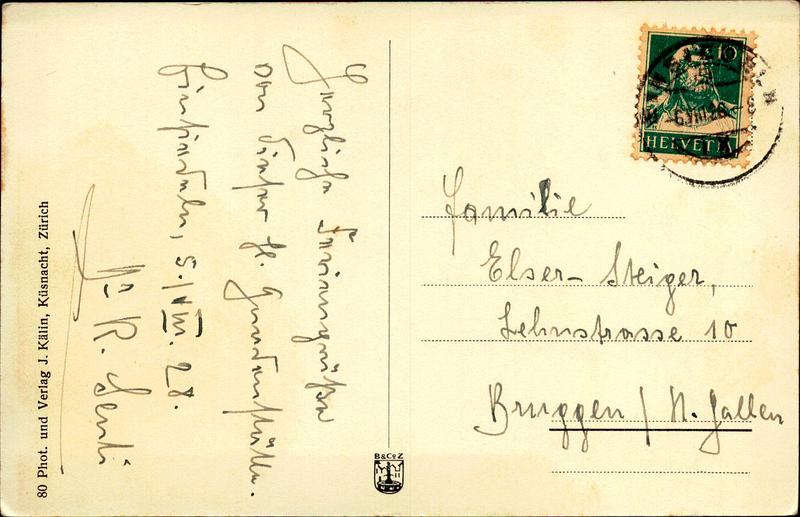 Herzliche Feriengrüße
von dieser hl. Gnadenstätte.
Einsiedeln, 5./VIII. 28.
Dr. R. Senti
80 Phot. und Verlag J. Kälin, Küsnacht, Zürich
B&Co Z
10
HELVETIA
Familie
Elser-Steiger,
Lehnstrasse 10
Bruggen / St. Gallen